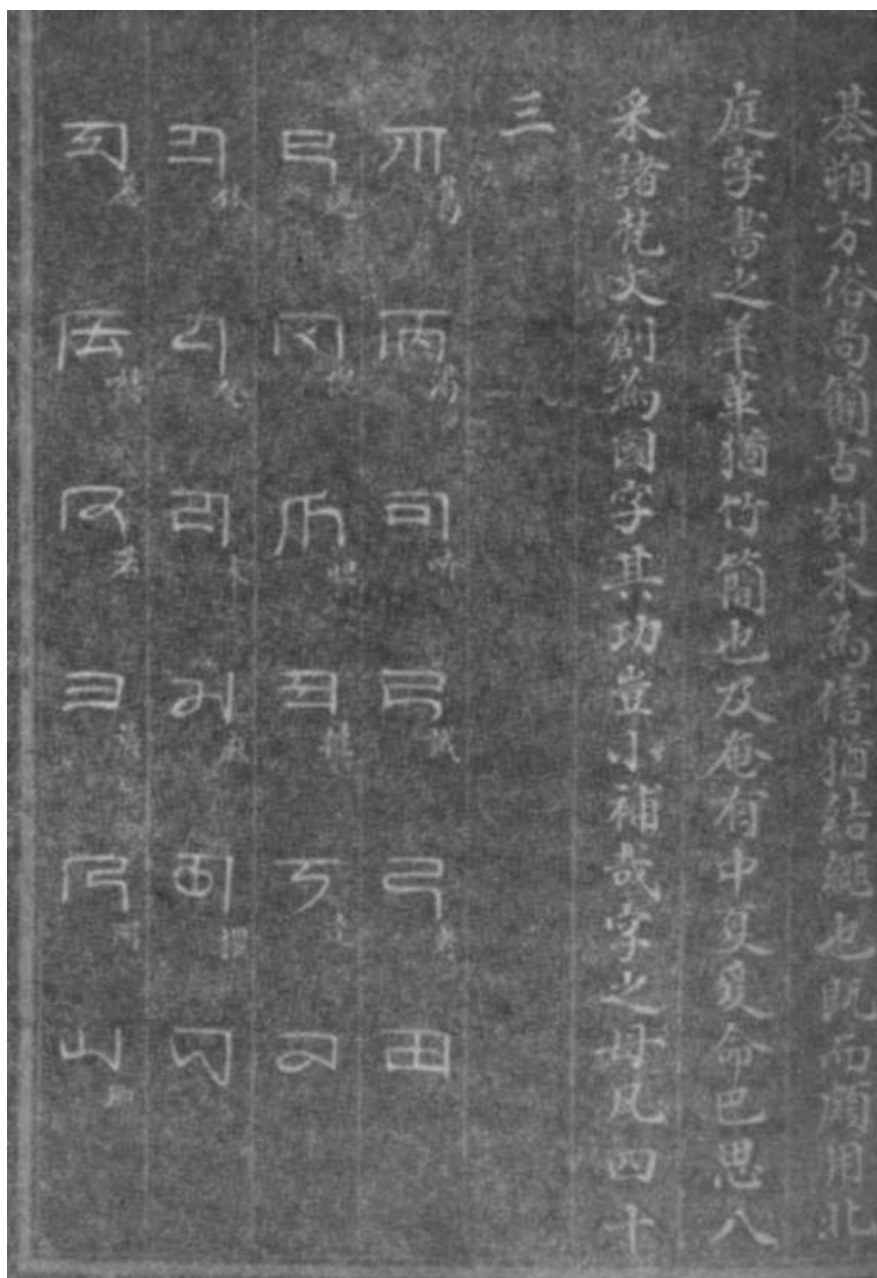 基朔方俗尚簡古刻木為信猶結繩也既而頗用北
庭字書之羊革猶竹簡也及奄有中夏爰命巴思八
采諸梵文創為國字其功豈小補哉字之母凡四十
三
ꡀ葛 ꡁ渴 ꡂ ꡃ誐 ꡄ者 ꡅ
ꡆ ꡇ ꡈ怛 ꡉ撻 ꡊ達 ꡋ
ꡌ鉢 ꡍ發 ꡎ末 ꡏ麻 ꡐ ꡑ
ꡒ惹 ꡓ嚩 ꡔ若 ꡕ薩 ꡖ阿 ꡗ耶